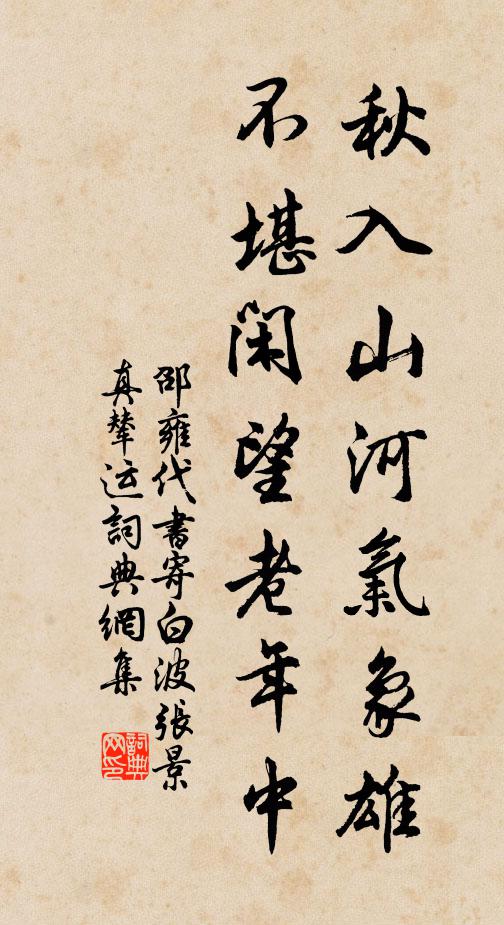 秋入山河氣象雄
不堪閑望老年中
邵雍代書寄白波張景
真輦運詞典網集
詞典
网印